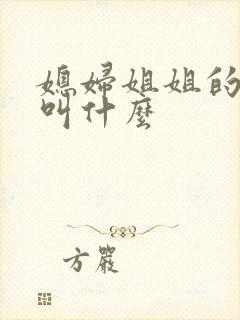 媳婦姐姐的
叫什麼
方嚴